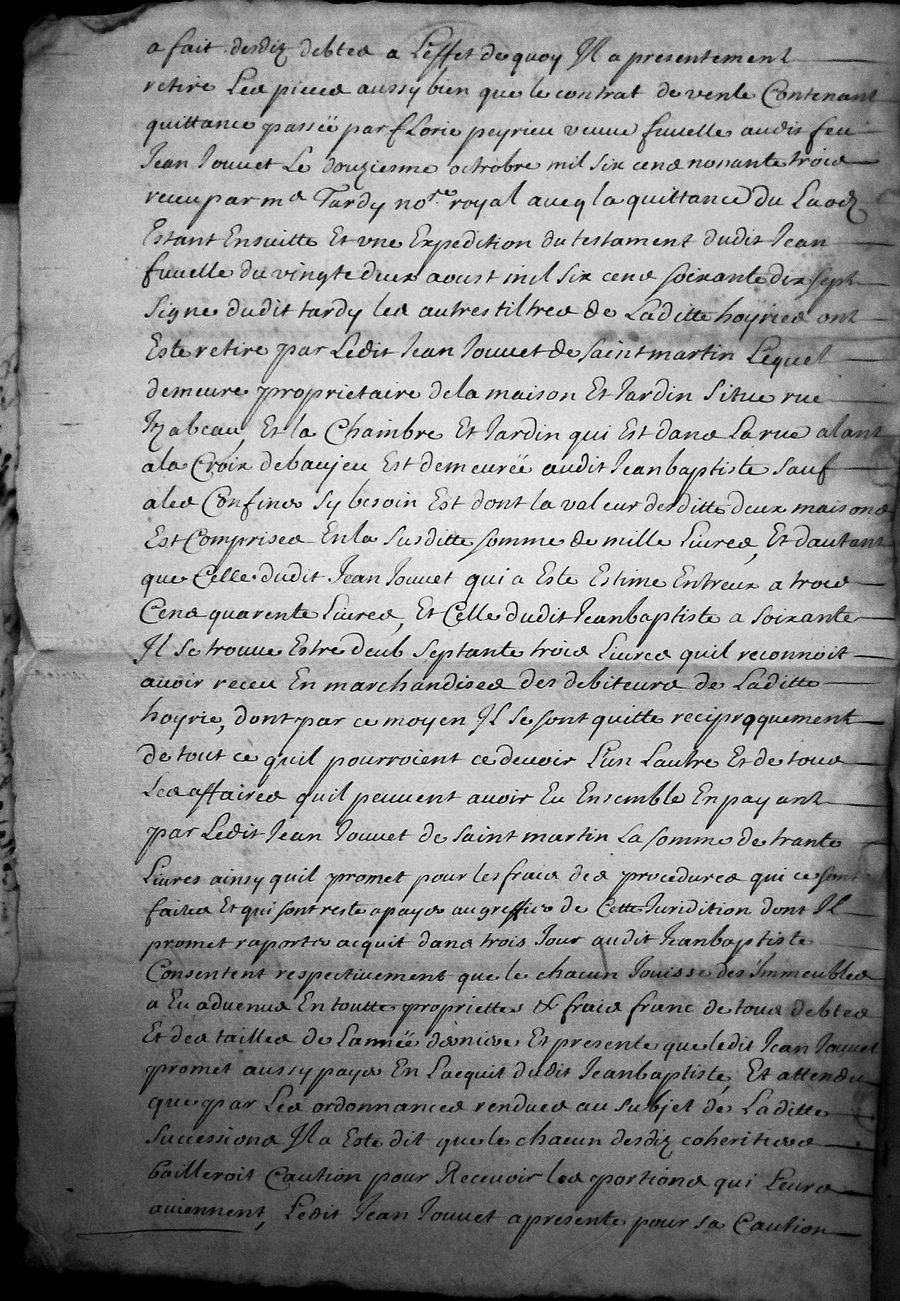 a fait desdiz debtes a Leffet de quoy Il a presentement
retire Les pieces aussy bien que le contrat de vente Contenant
quittance passeë par florie peyrieu veuve fuvelle audit feu
Jean Jouvet Le douziesme octrobre mil six cens nonante trois
receu par me Tardy nore royal avec la quittance du Laodz
Estant Ensuitte Et vne Expedition du testament dudit Jean
fuvelle du vingte deux aoust mil six cens soixante dix sept
signe dudit tardy les autres tiltres de Laditte hoyries ont
Este retire par Ledit Jean Jouvet de saint martin Lequel
demeure proprietaire de la maison Et Jardin situe rue
Izabeau, Et la Chambre Et Jardin qui Est dans La rue alant
ala Croix debaujeu Est demeureë audit Jeanbaptiste sauf
ales Confins sy besoin Est dont la valeur desditte deux maisons
Est Comprises En la susditte somme de mille Livres, Et dautant
que Celle dudit Jean Jouvet qui a Este Estime Entreux a trois
Cens quarente Livres, Et Celle dudit Jeanbaptiste a soixante
Il se trouve Estre deub septante trois Livres quil reconnoit
avoir receu En marchandises des debiteurs de Laditte
hoyrie, dont par ce moyen Il se sont quitte reciproquement
de tout ce quil pourroient ce devoir L'un Lautre Et de tous
Les affaires quil peuvent avoir Eu Ensemble En payant
par Ledit Jean Jouvet de saint martin La somme de trante
Livres ainsy quil promet pour les frais des procedures qui ce sont
faites Et qui sont reste a payer au greffier de Cette Juridition dont Il
promet raporter acquit dans trois Jour audit Jeanbaptiste
Consentent respectivement que le chacun Jouisse des Immeubles
a Eu advenus En toutte propriettes & frais franc de tous debtes
Et des tailles de Lanneë derniere Et presente que ledit Jean Jouvet
promet aussy payer En Lacquit dudit Jeanbaptiste, Et attendu
que par Les ordonnances rendues au subjet de Laditte
successions Il a Este dit que le chacun desdiz coheritiers
bailleroit Caution pour Recevoir les portions qui Leurs
aviennent, Ledit Jean Jouvet a presente pour sa Caution